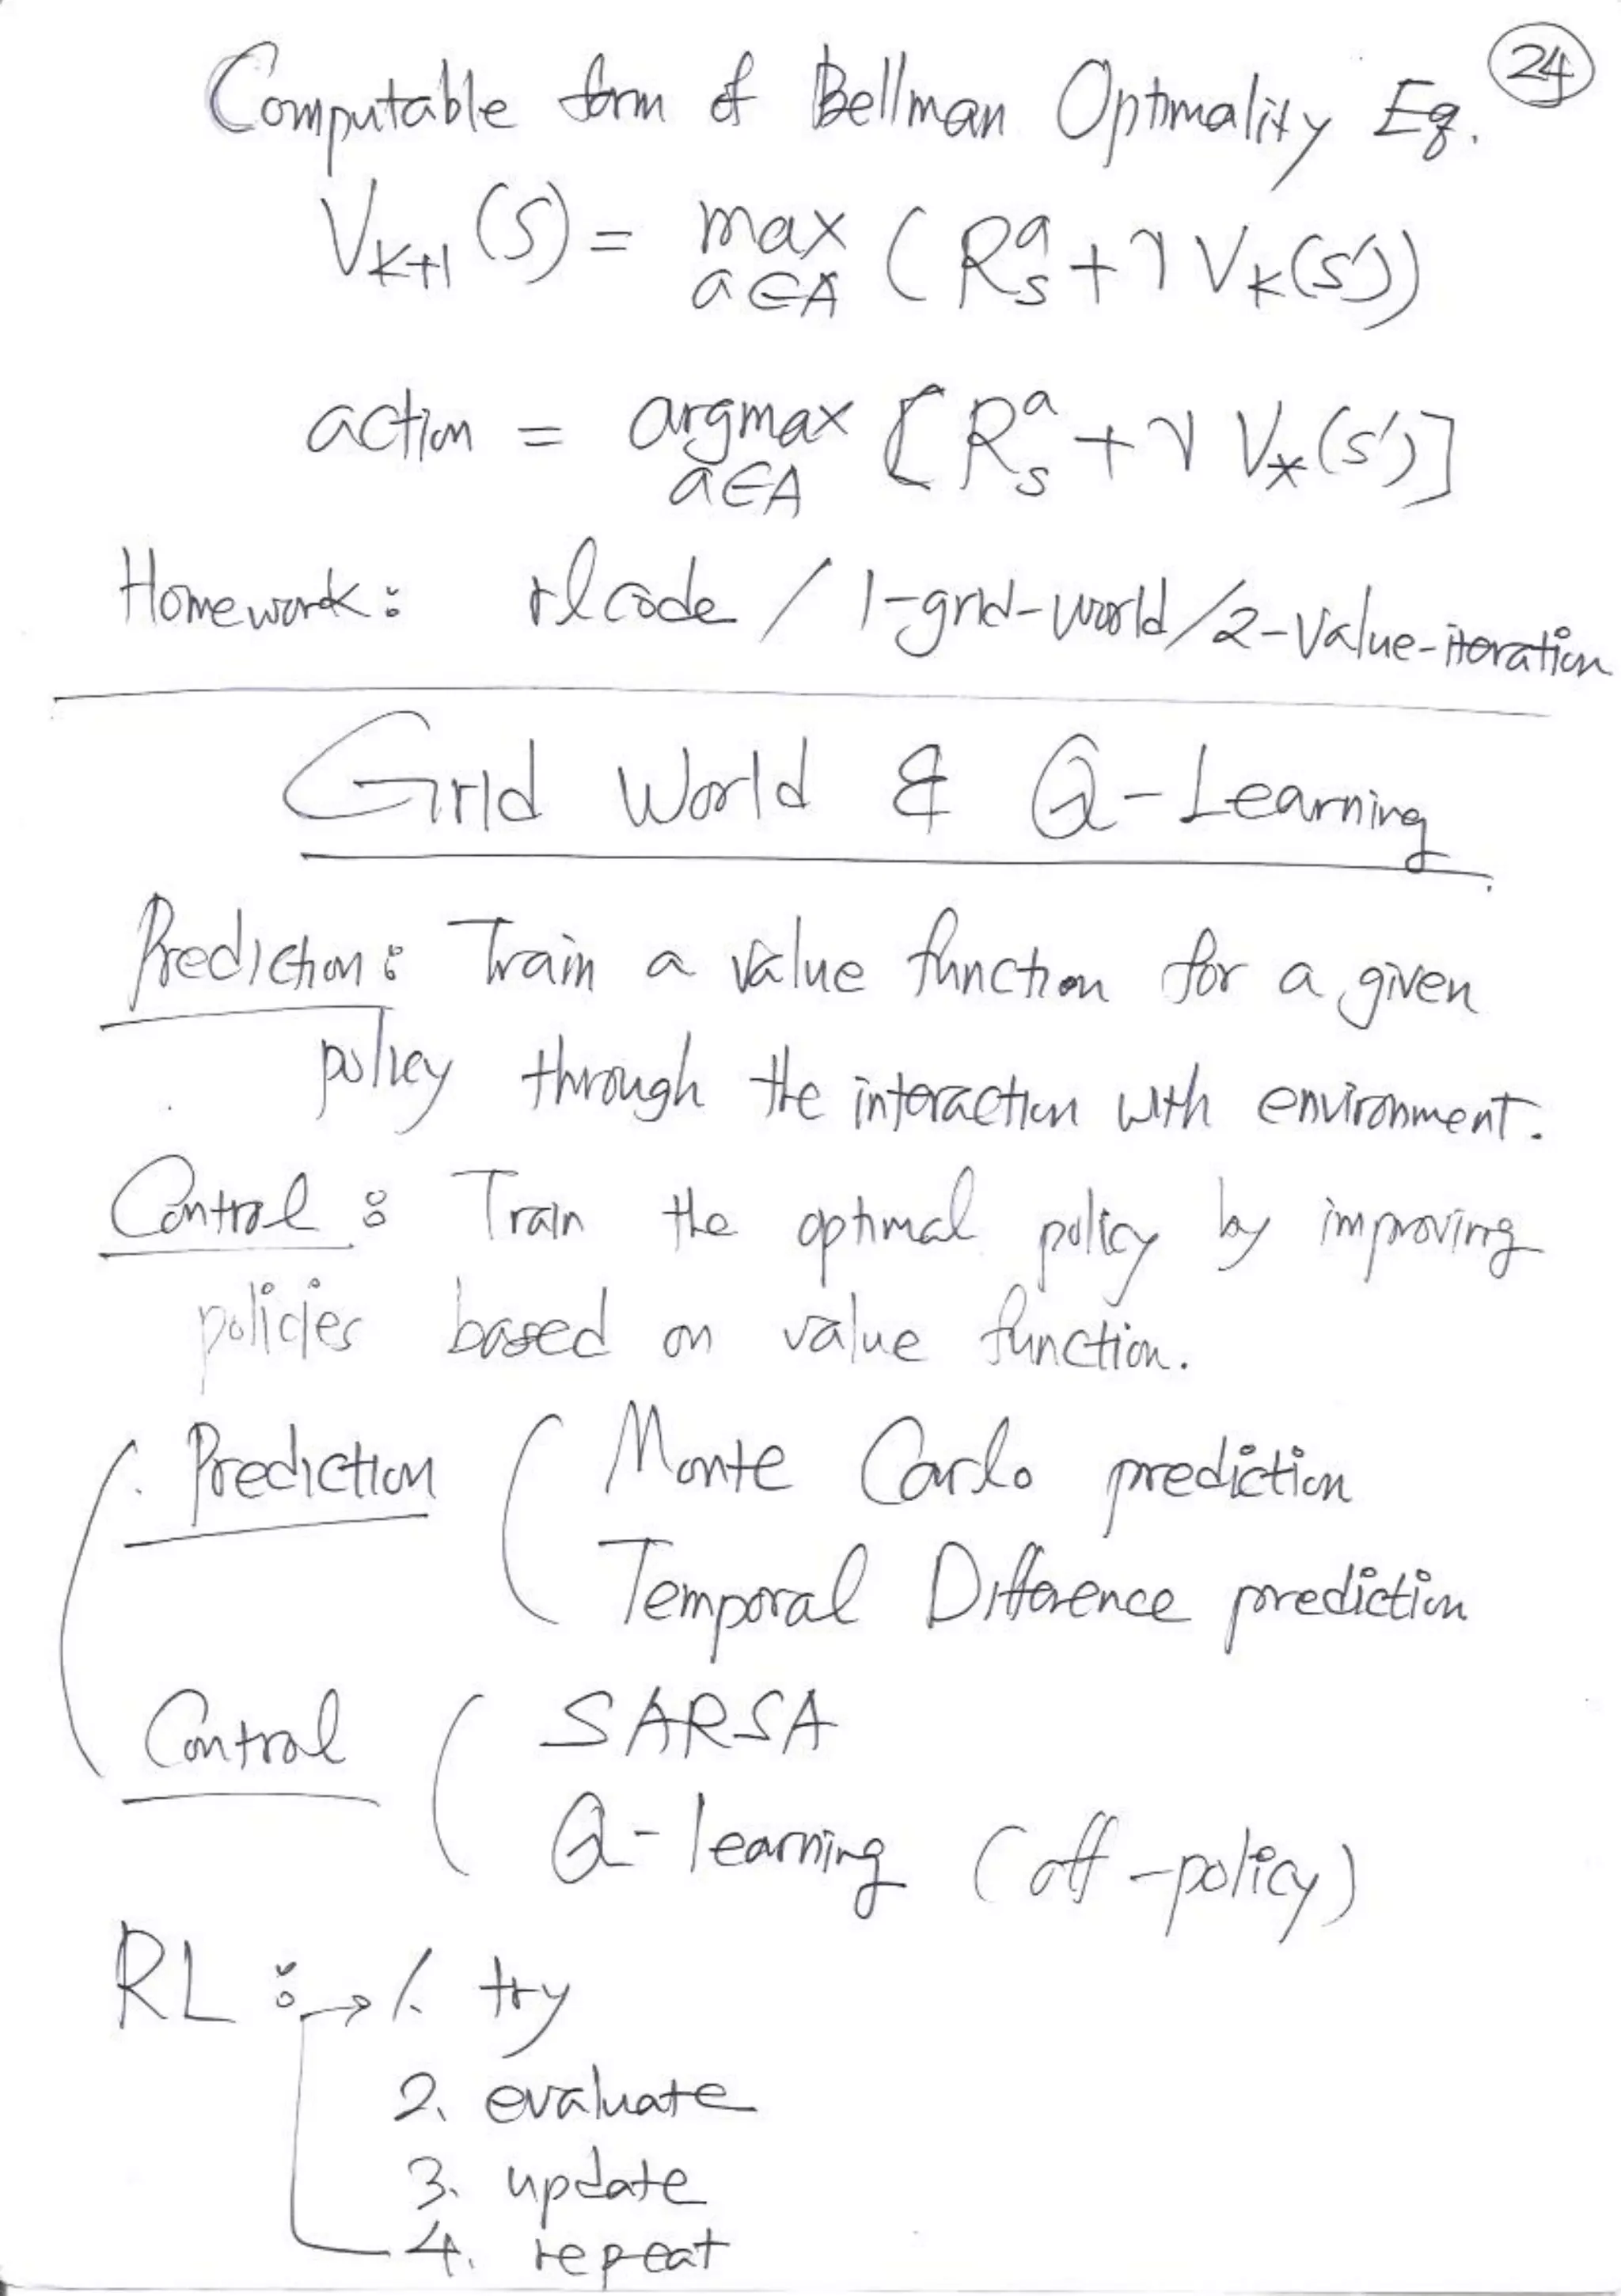 24
Computable form of Bellman Optimality Eq.
V_{k+1}(s) = max_{a∈A} (R_s^a + γ V_k(s'))
action = argmax_{a∈A} [R_s^a + γ V_*(s')]
Homework: rlcode / 1-grid-world/2-value-iteration
Grid World & Q-Learning
Prediction: Train a value function for a given
policy through the interaction with environment.
Control: Train the optimal policy by improving
policies based on value function.
Prediction ( Monte Carlo prediction
Temporal Difference prediction
Control ( SARSA
Q-learning (off-policy)
RL: → 1. try
2. evaluate
3. update
4. repeat